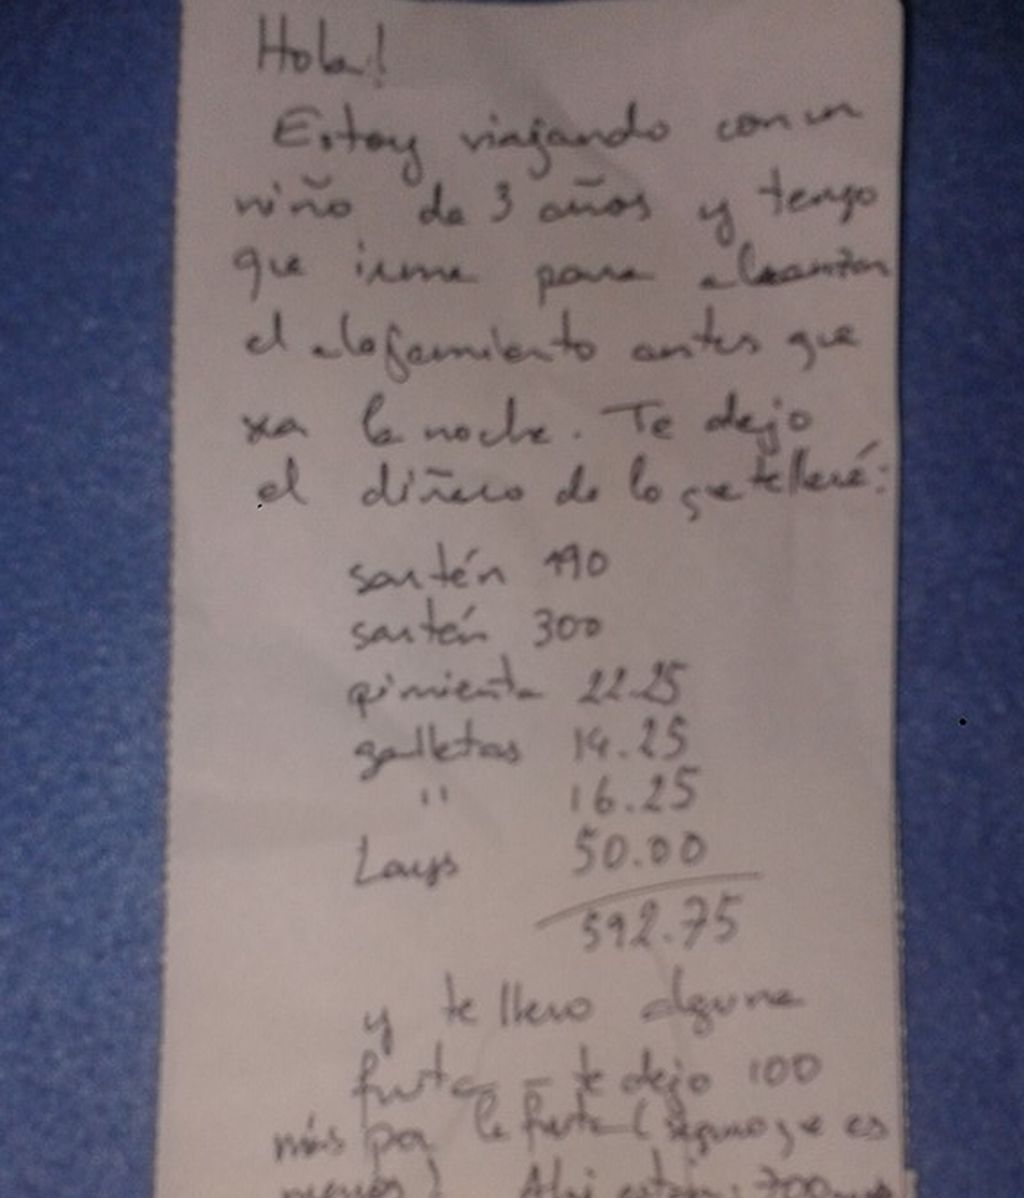 Hola!
Estoy viajando con un
niño de 3 años y tengo
que irme para alcanzar
el alojamiento antes que
sea la noche. Te dejo
el diñero de lo que te llevé:
sartén 190
sartén 300
pimienta 22.25
galletas 14.25
" 16.25
Lays 50.00
592.75
y te llevo alguna
fruta - te dejo 100
más por la fruta (seguro que es
menos) Ahí están: 700